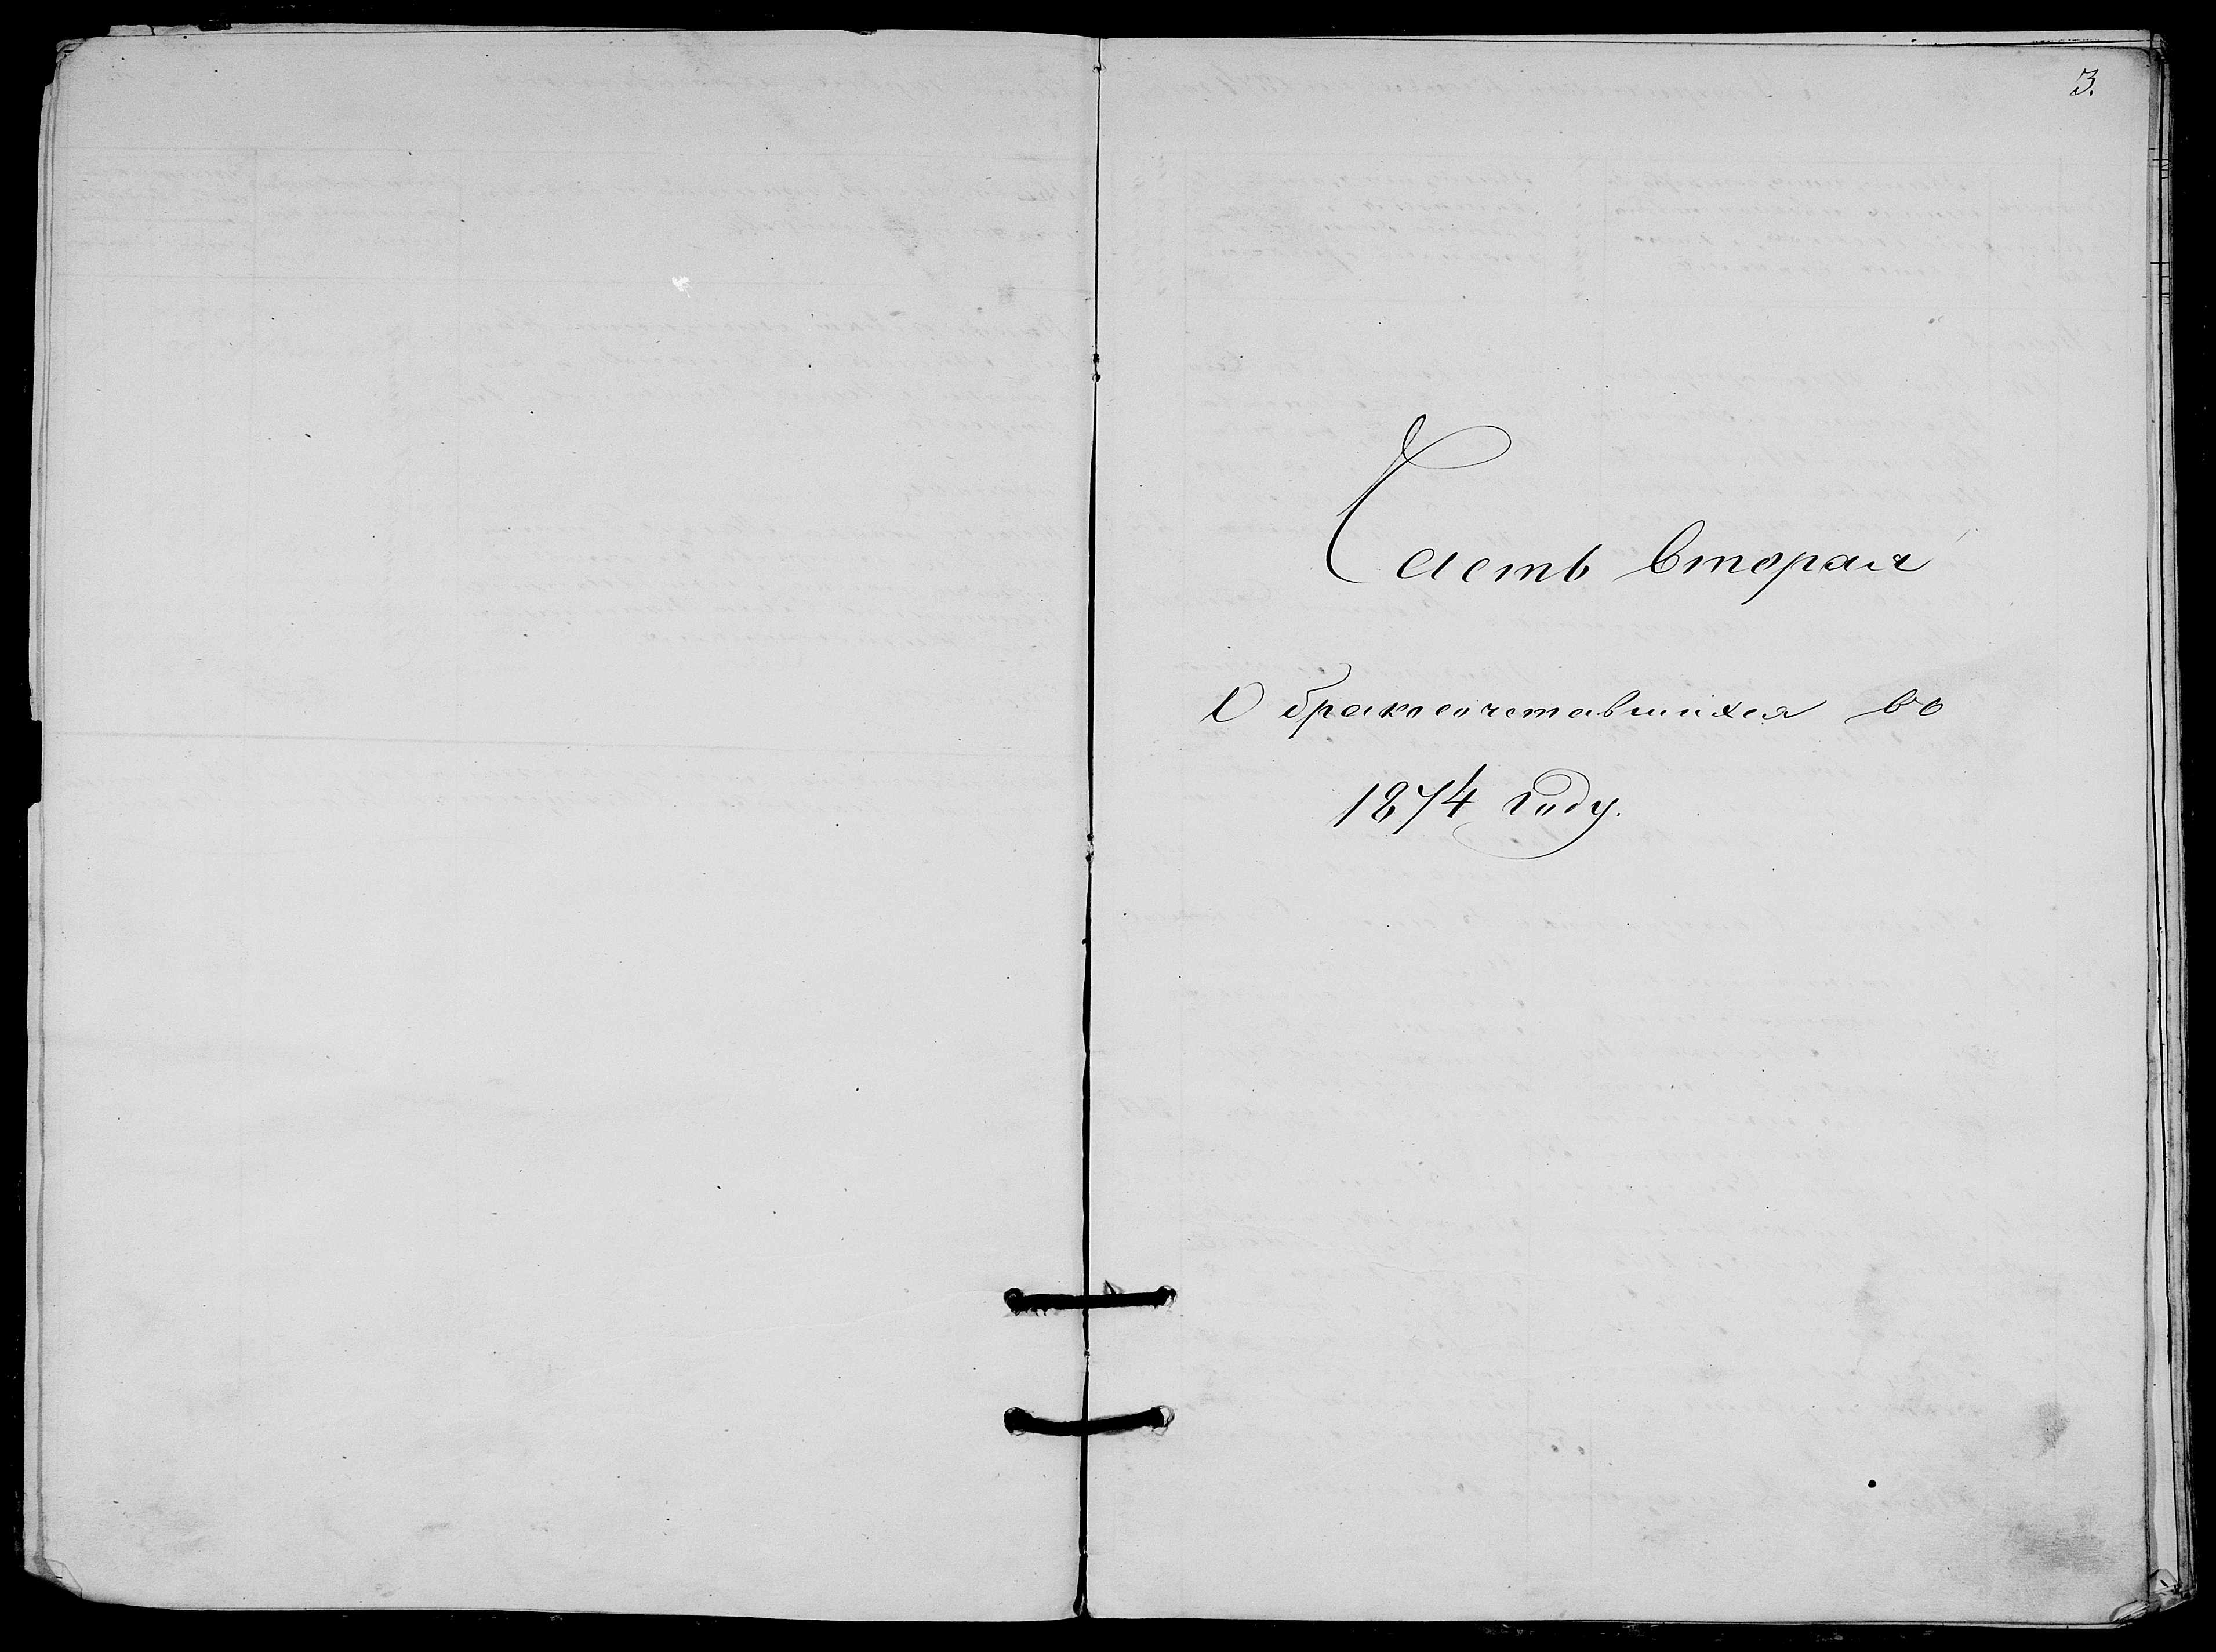 3.
Часть вторая
О бракосочетавшихся во
1874 году.